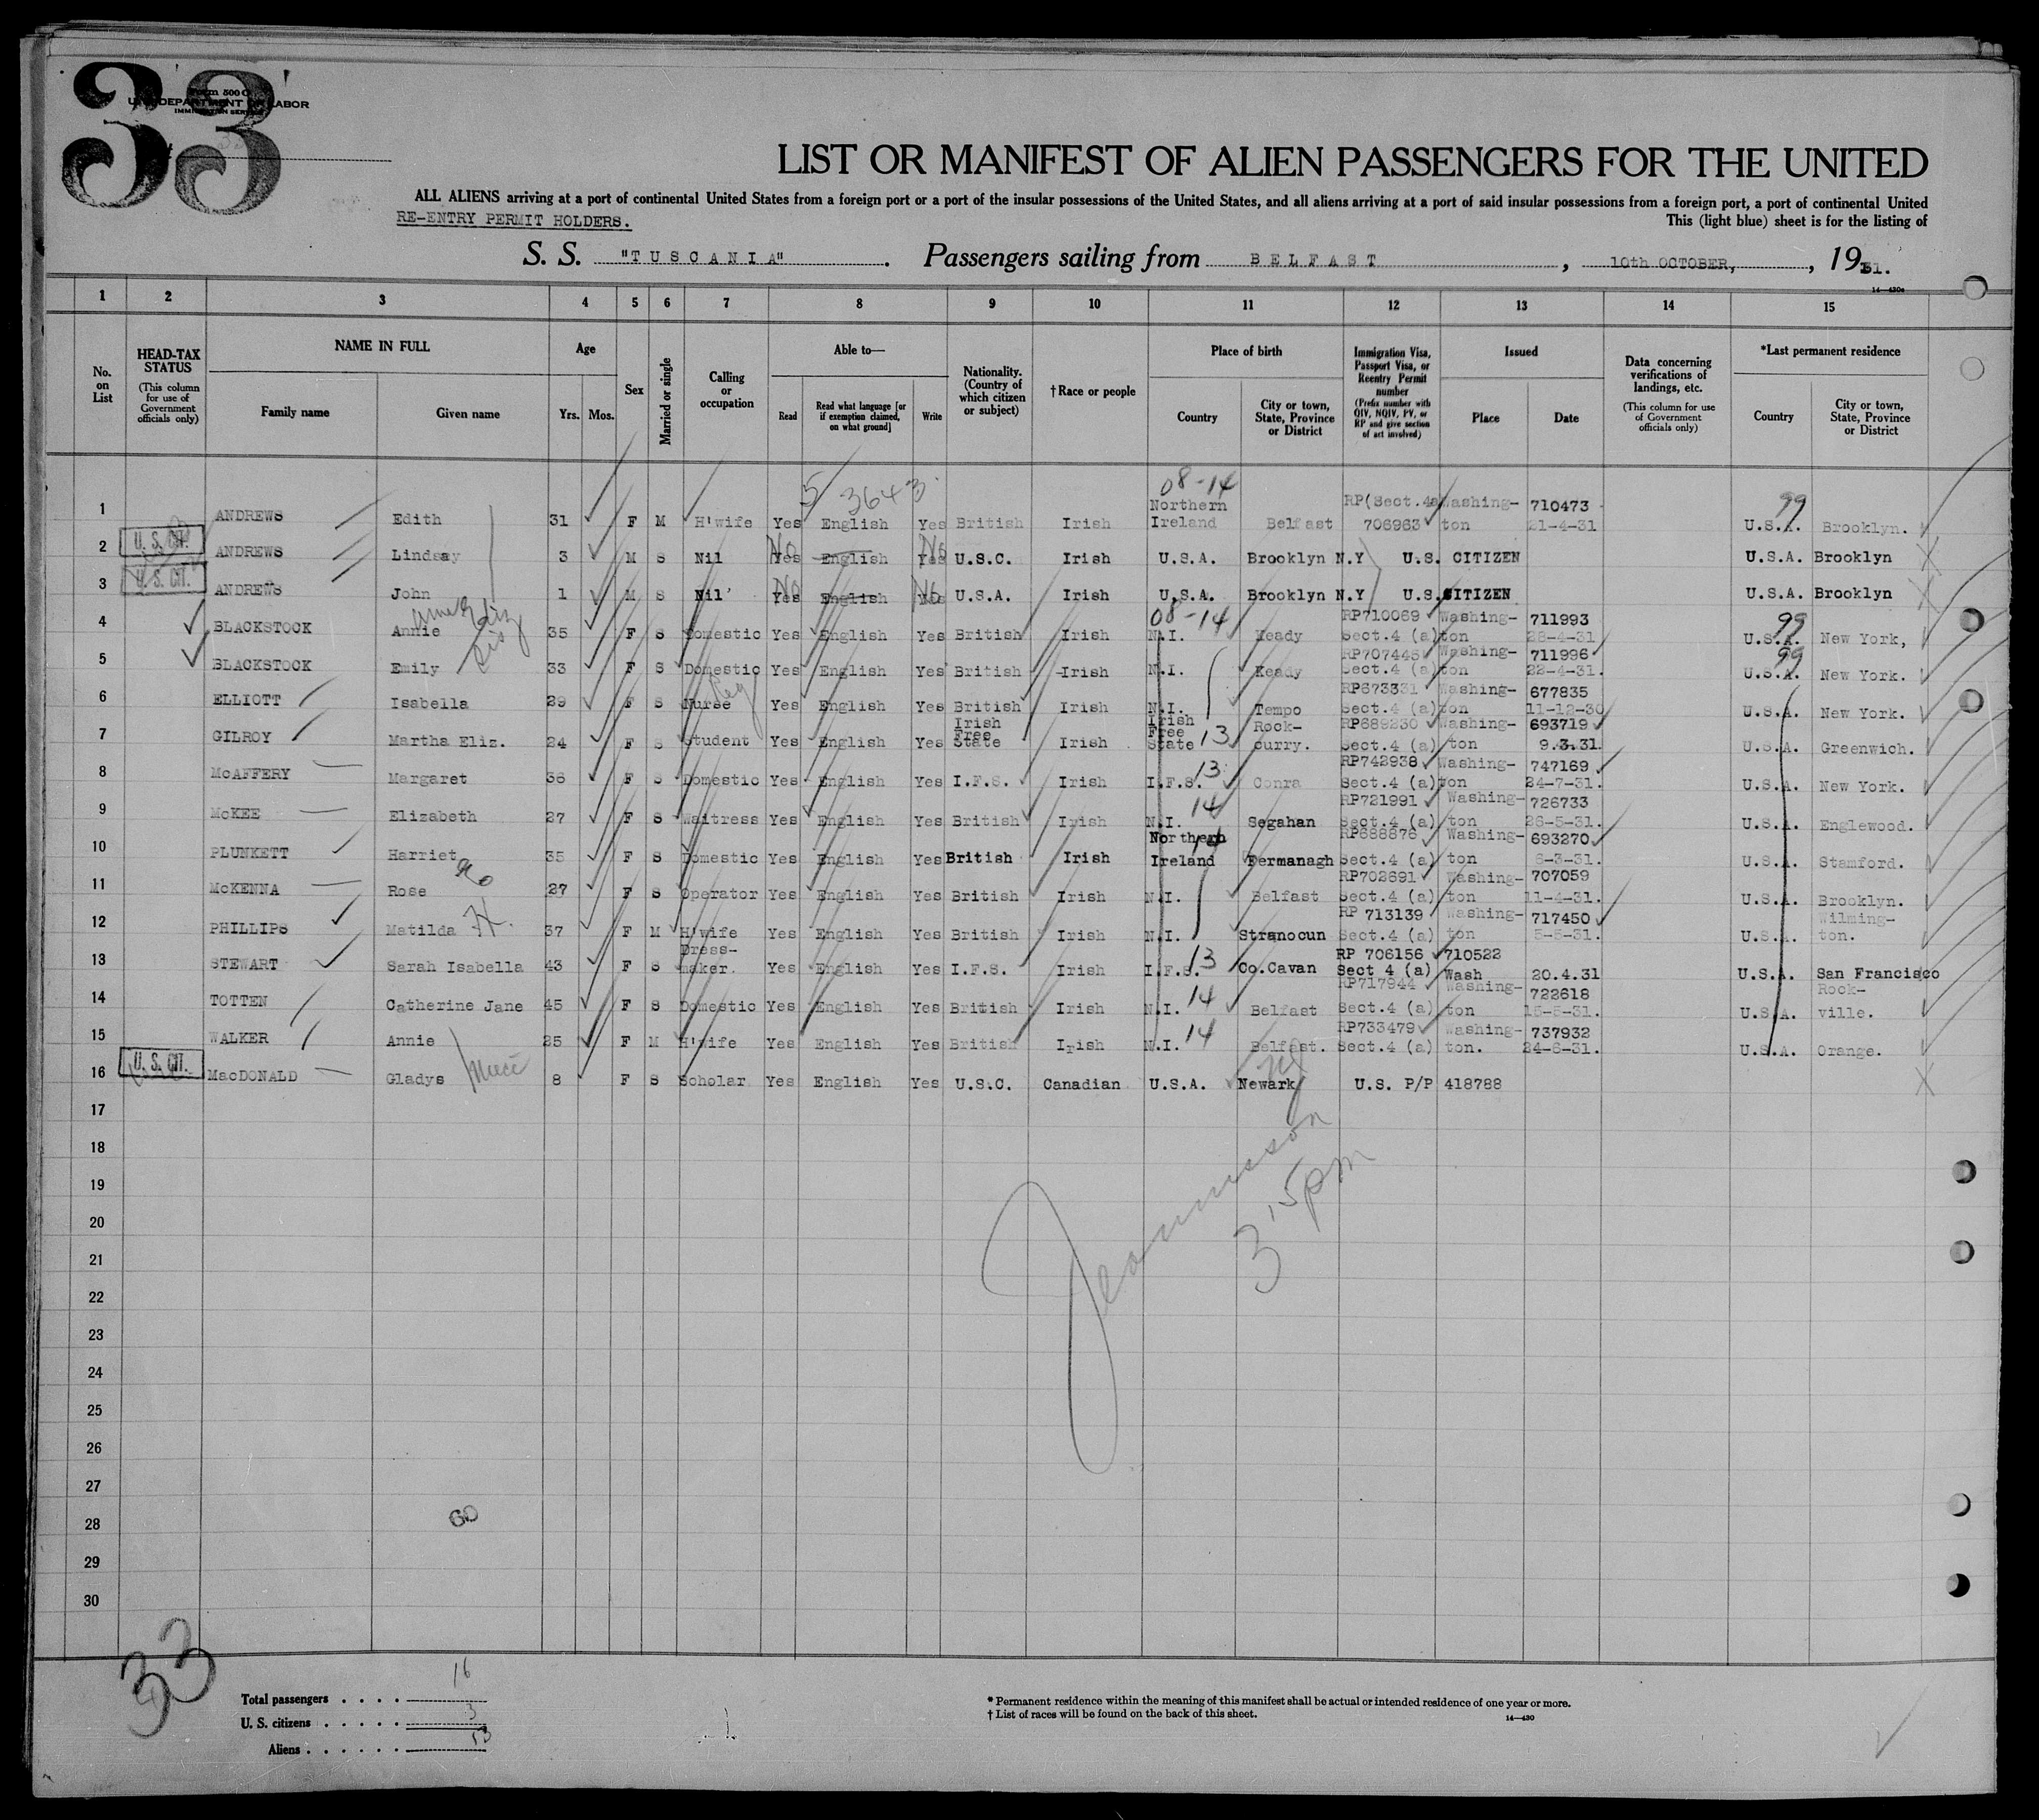 33
Form 500 C
U.S. DEPARTMENT OF LABOR
IMMIGRATION SERVICE
LIST OR MANIFEST OF ALIEN PASSENGERS FOR THE UNITED
ALL ALIENS arriving at a port of continental United States from a foreign port or a port of the insular possessions of the United States, and all aliens arriving at a port of said insular possessions from a foreign port, a port of continental United
RE-ENTRY PERMIT HOLDERS.
This (light blue) sheet is for the listing of
S. S. "TUSCANIA". Passengers sailing from BELFAST, 10th OCTOBER, , 1931.
14—430c
1 2 3 4 5 6 7 8 9 10 11 12 13 14 15
No. on List
HEAD-TAX STATUS (This column for use of Government officials only)
NAME IN FULL
Family name
Given name
Age
Yrs. Mos.
Sex
Married or single
Calling or occupation
Able to—
Read
Read what language [or if exemption claimed, on what ground]
Write
Nationality. (Country of which citizen or subject)
†Race or people
Place of birth
Country
City or town, State, Province or District
Immigration Visa, Passport Visa, or Reentry Permit number (Prefix number with QIV, NQIV, PV, or RP and give section of act involved)
Issued
Place
Date
Data concerning verifications of landings, etc. (This column for use of Government officials only)
*Last permanent residence
Country
City or town, State, Province or District
5/3643
08-14
99
1 ANDREWS Edith 31 F M H'wife Yes English Yes British Irish Northern Ireland Belfast RP(Sect.4a 706963 Washing-ton 710473 21-4-31 U.S.A. Brooklyn.
U. S. CIT.
2 ANDREWS Lindsay 3 M S Nil Yes No English Yes No U.S.C. Irish U.S.A. Brooklyn N.Y U.S. CITIZEN U.S.A. Brooklyn
U. S. CIT.
3 ANDREWS John 1 M S Nil Yes No English Yes No U.S.A. Irish U.S.A. Brooklyn N.Y U.S. CITIZEN U.S.A. Brooklyn
08-14
99
4 BLACKSTOCK Annie Eliz 35 F S Domestic Yes English Yes British Irish N.I. Keady RP710069 Sect.4 (a) Washing-ton 711993 28-4-31 U.S.A. New York,
sis
99
5 BLACKSTOCK Emily 33 F S Domestic Yes English Yes British Irish N.I. Keady RP707445 Sect.4 (a) Washing-ton 711996 22-4-31. U.S.A. New York.
6 ELLIOTT Isabella 29 F S Nurse Yes English Yes British Irish N.I. Tempo RP673331 Sect.4 (a) Washing-ton 677835 11-12-30 U.S.A. New York.
7 GILROY Martha Eliz. 24 F S Student Yes English Yes Irish Free State Irish Irish Free State 13 Rock-curry. RP689230 Sect.4 (a) Washing-ton 693719 9.3.31. U.S.A. Greenwich.
8 McAFFERY Margaret 36 F S Domestic Yes English Yes I.F.S. Irish I.F.S. 13 Conra RP742938 Sect.4 (a) Washing-ton 747169 24-7-31. U.S.A. New York.
9 McKEE Elizabeth 27 F S Waitress Yes English Yes British Irish N.I. 14 Segahan RP721991 Sect.4 (a) Washing-ton 726733 26-5-31. U.S.A. Englewood.
10 PLUNKETT Harriet 35 F S Domestic Yes English Yes British Irish Northern Ireland 14 Fermanagh RP688676 Sect.4 (a) Washing-ton 693270 6-3-31. U.S.A. Stamford.
11 McKENNA Rose 27 F S Operator Yes English Yes British Irish N.I. Belfast RP702691 Sect.4 (a) Washing-ton 707059 11-4-31. U.S.A. Brooklyn.
12 PHILLIPS Matilda H. 37 F M H'wife Yes English Yes British Irish N.I. Stranocun RP 713139 Sect.4 (a) Washing-ton 717450 5-5-31. U.S.A. Wilming-ton.
13 STEWART Sarah Isabella 43 F S Dress-maker. Yes English Yes I.F.S. Irish I.F.S. 13 Co.Cavan RP 706156 Sect 4 (a) Wash 710522 20.4.31 U.S.A. San Francisco
14 TOTTEN Catherine Jane 45 F S Domestic Yes English Yes British Irish N.I. 14 Belfast RP717944 Sect.4 (a) Washing-ton 722618 15-5-31. U.S.A. Rock-ville.
15 WALKER Annie 25 F M H'wife Yes English Yes British Irish N.I. 14 Belfast. RP733479 Sect.4 (a) Washing-ton. 737932 24-6-31. U.S.A. Orange.
U. S. CIT.
16 MacDONALD Gladys niece 8 F S Scholar Yes English Yes U.S.C. Canadian U.S.A. Newark NJ U.S. P/P 418788
17
18
19
20
21
22
23
24
25
26
27
28
29
30
Jeannisson
3.15pm
33
Total passengers 16
U. S. citizens 3
Aliens 13
* Permanent residence within the meaning of this manifest shall be actual or intended residence of one year or more.
† List of races will be found on the back of this sheet.
14—430